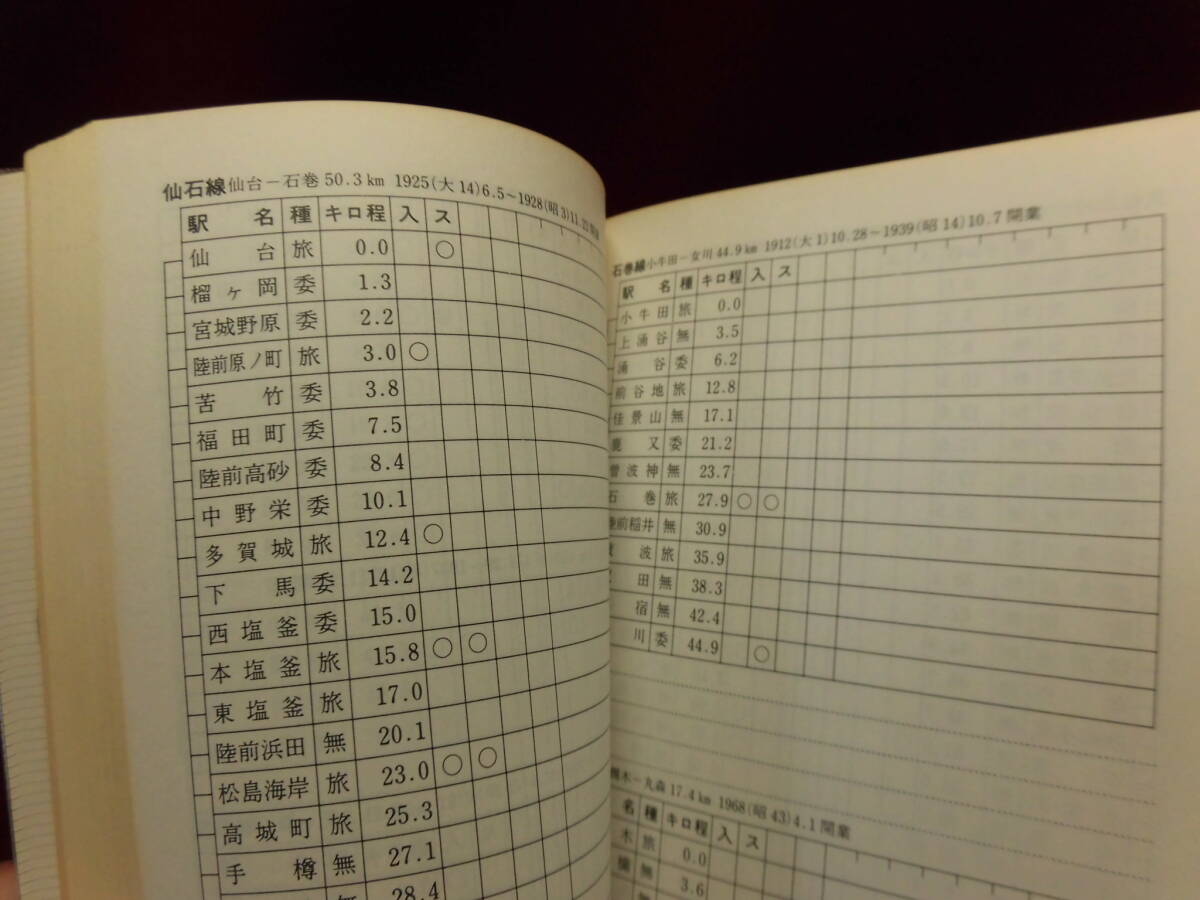 仙石線 仙台－石巻 50.3km 1925(大14)6.5～1928(昭3)11.22開業
駅名 種 キロ程 入 ス
仙台 旅 0.0 ○
榴ヶ岡 委 1.3
宮城野原 委 2.2
陸前原ノ町 旅 3.0 ○
苦竹 委 3.8
福田町 委 7.5
陸前高砂 委 8.4
中野栄 委 10.1
多賀城 旅 12.4 ○
下馬 委 14.2
西塩釜 委 15.0
本塩釜 旅 15.8 ○ ○
東塩釜 旅 17.0
陸前浜田 無 20.1
松島海岸 旅 23.0 ○ ○
高城町 旅 25.3
手樽 無 27.1
無 28.4
石巻線 小牛田－女川 44.9km 1912(大1)10.28～1939(昭14)10.7開業
駅名 種 キロ程 入 ス
小牛田 旅 0.0
上涌谷 無 3.5
涌谷 委 6.2
前谷地 旅 12.8
佳景山 無 17.1
鹿又 委 21.2
曽波神 無 23.7
石巻 旅 27.9 ○ ○
陸前稲井 無 30.9
波 旅 35.9
田 無 38.3
宿 無 42.4
川 委 44.9 ○
槻木－丸森 17.4km 1968(昭43)4.1開業
名 種 キロ程 入 ス
木 旅 0.0
横 無 3.6